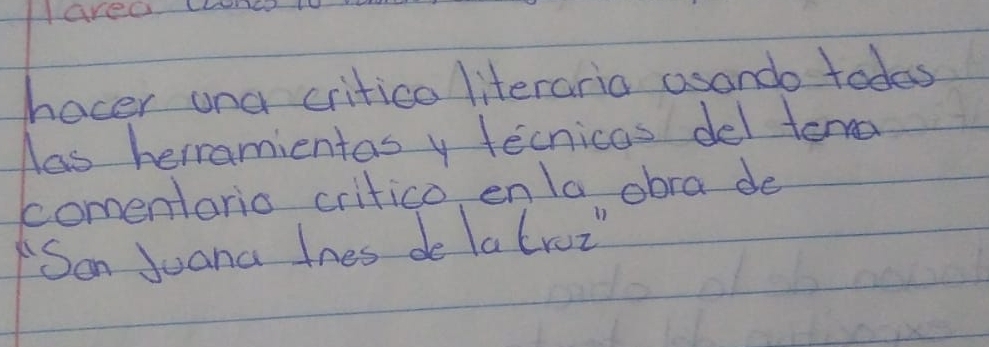 Tarea
hacer una critica literaria usando todas
las herramientas y técnicas del tema
comentario critico en la obra de
"Son Juana Ines de la Cruz"